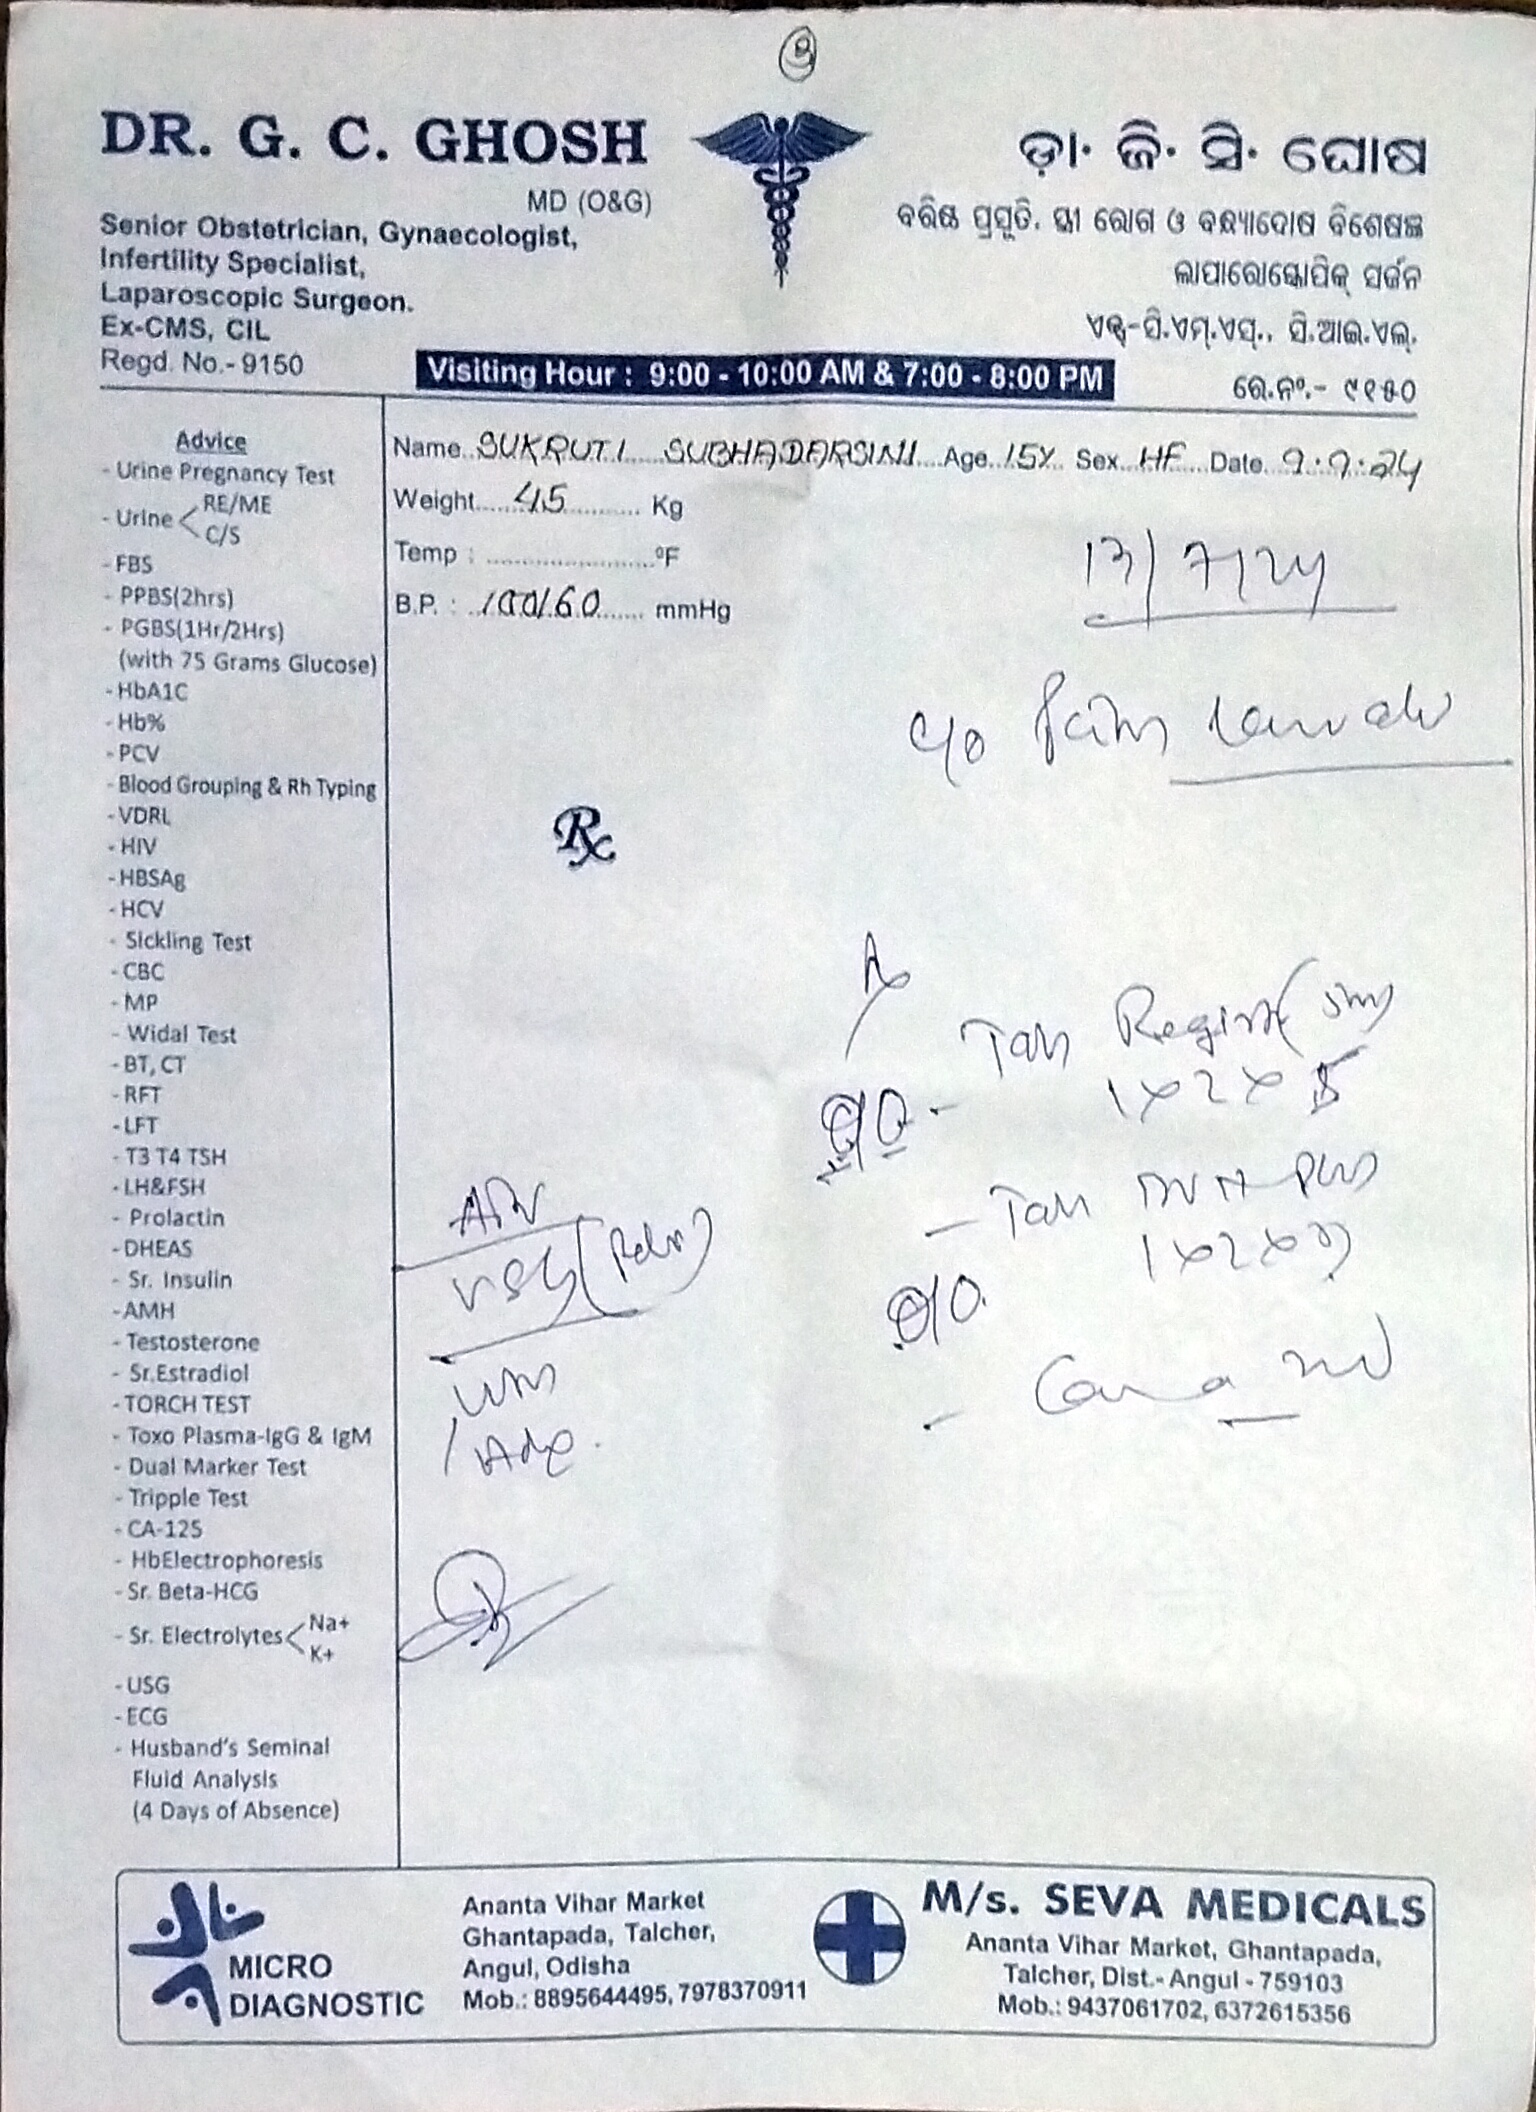 DR. G. C. GHOSH
MD (O&G)
Senior Obstetrician, Gynaecologist,
Infertility Specialist,
Laparoscopic Surgeon.
Ex-CMS, CIL
Regd. No.- 9150
ଡ଼ା. ଜି. ସି. ଘୋଷ
ବରିଷ୍ଠ ପ୍ରସୂତି, ସ୍ତ୍ରୀ ରୋଗ ଓ ବନ୍ଧ୍ୟାଦୋଷ ବିଶେଷଜ୍ଞ
ଲାପାରୋସ୍କୋପିକ୍ ସର୍ଜନ
ଏକ୍ସ-ସି.ଏମ୍.ଏସ୍., ସି.ଆଇ.ଏଲ୍.
ରେ.ନଂ.- ୯୧୫୦
Visiting Hour : 9:00 - 10:00 AM & 7:00 - 8:00 PM
Name SUKRUTI SUBHADARSINI Age 15Y Sex HF Date 9.7.24
Weight 45 Kg
Temp : °F
B.P. : 100/60 mmHg
13/7/24
c/o Pain
Rx
Tab
1x2x5
Tab
1x2x
Advice
- Urine Pregnancy Test
- Urine < RE/ME
C/S
- FBS
- PPBS(2hrs)
- PGBS(1Hr/2Hrs)
(with 75 Grams Glucose)
- HbA1C
- Hb%
- PCV
- Blood Grouping & Rh Typing
- VDRL
- HIV
- HBSAg
- HCV
- Sickling Test
- CBC
- MP
- Widal Test
- BT, CT
- RFT
- LFT
- T3 T4 TSH
- LH&FSH
- Prolactin
- DHEAS
- Sr. Insulin
- AMH
- Testosterone
- Sr.Estradiol
- TORCH TEST
- Toxo Plasma-IgG & IgM
- Dual Marker Test
- Tripple Test
- CA-125
- HbElectrophoresis
- Sr. Beta-HCG
- Sr. Electrolytes < Na+
K+
- USG
- ECG
- Husband's Seminal
Fluid Analysis
(4 Days of Absence)
Adv
USG (Pelvis)
MICRO
DIAGNOSTIC
Ananta Vihar Market
Ghantapada, Talcher,
Angul, Odisha
Mob.: 8895644495, 7978370911
M/s. SEVA MEDICALS
Ananta Vihar Market, Ghantapada,
Talcher, Dist.- Angul - 759103
Mob.: 9437061702, 6372615356